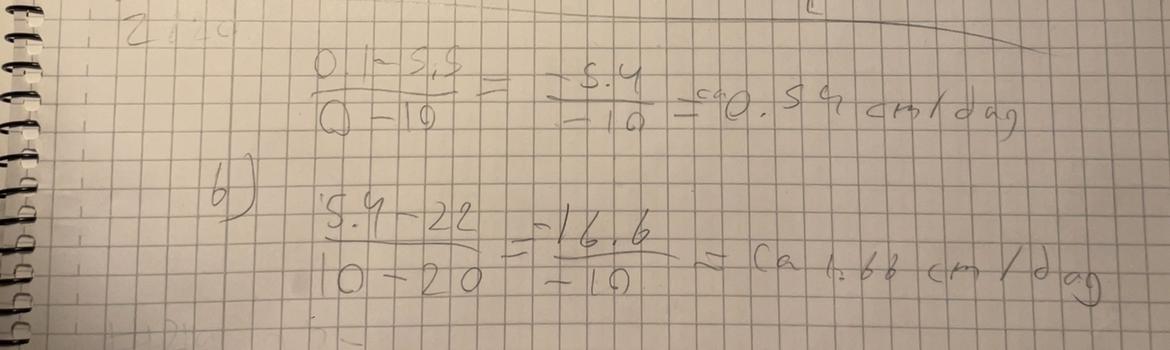 0.1-5.5 / 0-10 = -5.4 / -10 = ca 0.54 cm/dag
b)
5.4-22 / 10-20 = -16.6 / -10 = ca 1.66 cm/dag